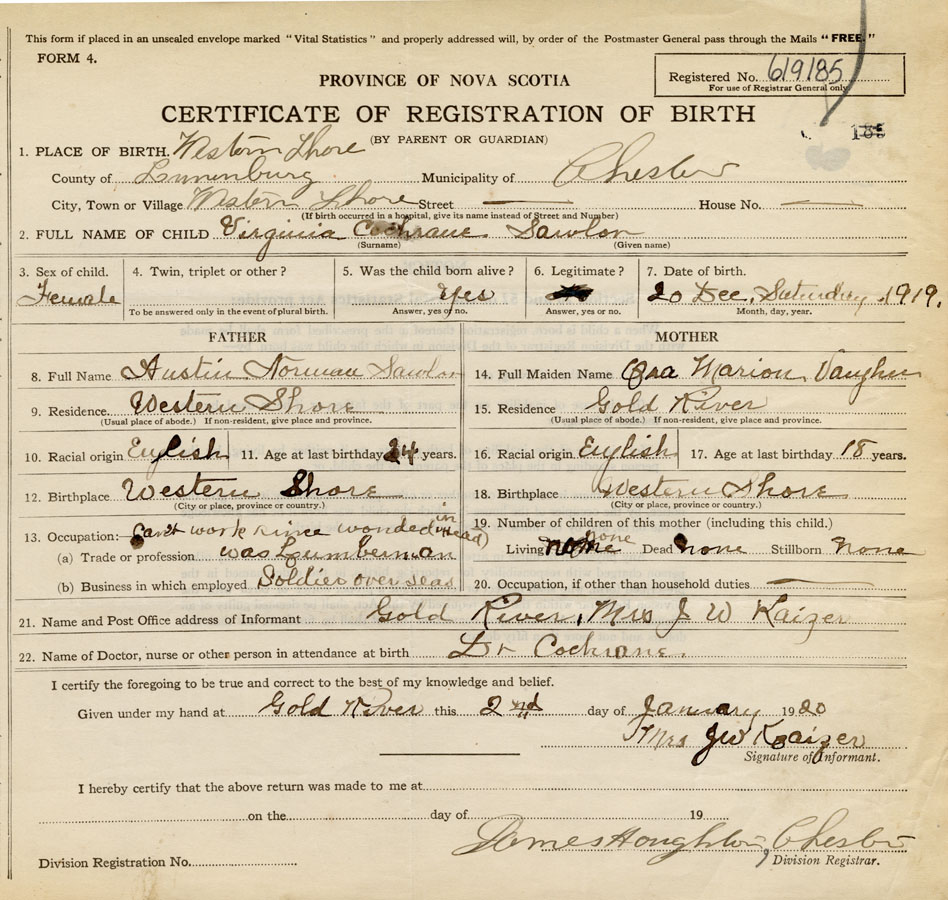 This form if placed in an unsealed envelope marked "Vital Statistics" and properly addressed will, by order of the Postmaster General pass through the Mails "FREE."
FORM 4.
PROVINCE OF NOVA SCOTIA
Registered No. 619185
For use of Registrar General only.
CERTIFICATE OF REGISTRATION OF BIRTH
(BY PARENT OR GUARDIAN)
185
1. PLACE OF BIRTH. Western Shore
County of Lunenburg Municipality of Chester
City, Town or Village Western Shore Street — House No. —
(If birth occurred in a hospital, give its name instead of Street and Number)
2. FULL NAME OF CHILD Virginia Cochrane Sawlon
(Surname) (Given name)
3. Sex of child. 4. Twin, triplet or other? 5. Was the child born alive? 6. Legitimate? 7. Date of birth.
Female Yes 20 Dec, Saturday, 1919.
To be answered only in the event of plural birth. Answer, yes or no. Answer, yes or no. Month, day, year.
FATHER MOTHER
8. Full Name Austin Norman Sawlon 14. Full Maiden Name Ora Marion Vaughn
9. Residence. Western Shore 15. Residence Gold River
(Usual place of abode.) If non-resident, give place and province. (Usual place of abode.) If non-resident, give place and province.
10. Racial origin English 11. Age at last birthday 24 years. 16. Racial origin English 17. Age at last birthday 18 years.
12. Birthplace Western Shore 18. Birthplace Western Shore
(City or place, province or country.) (City or place, province or country.)
13. Occupation: Can't work since wonded in Head) 19. Number of children of this mother (including this child.)
(a) Trade or profession was Lumberman Living none none Dead none Stillborn none
(b) Business in which employed Soldier over seas 20. Occupation, if other than household duties —
21. Name and Post Office address of Informant Gold River, Mrs J W Kaizer
22. Name of Doctor, nurse or other person in attendance at birth Dr Cochrane.
I certify the foregoing to be true and correct to the best of my knowledge and belief.
Given under my hand at Gold River this 2nd day of January 1920
Mrs JW Kaizer
Signature of Informant.
I hereby certify that the above return was made to me at
on the day of 19
James Houghton, Chester
Division Registration No. Division Registrar.